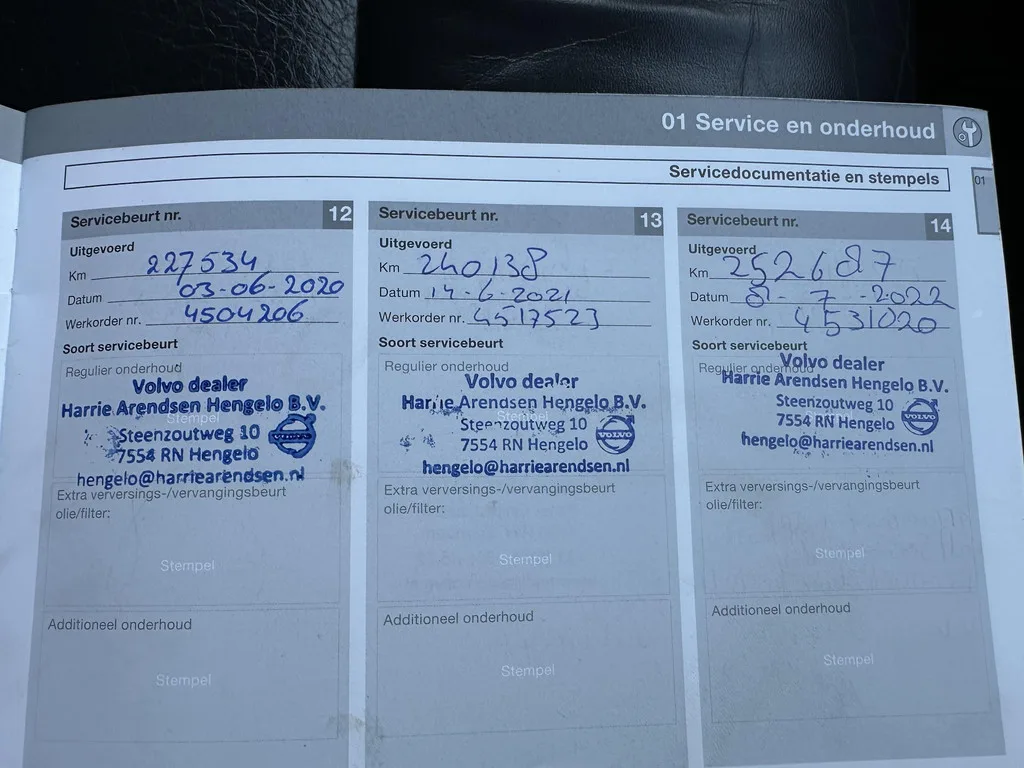 01 Service en onderhoud
Servicedocumentatie en stempels
01
Servicebeurt nr. 12
Uitgevoerd
Km 227534
Datum 03-06-2020
Werkorder nr. 4504206
Soort servicebeurt
Regulier onderhoud
Stempel
Volvo dealer
Harrie Arendsen Hengelo B.V.
Steenzoutweg 10
7554 RN Hengelo
VOLVO
hengelo@harriearendsen.nl
Extra verversings-/vervangingsbeurt
olie/filter:
Stempel
Additioneel onderhoud
Stempel
Servicebeurt nr. 13
Uitgevoerd
Km 240138
Datum 14-6-2021
Werkorder nr. 4517523
Soort servicebeurt
Regulier onderhoud
Stempel
Volvo dealer
Harrie Arendsen Hengelo B.V.
Steenzoutweg 10
7554 RN Hengelo
VOLVO
hengelo@harriearendsen.nl
Extra verversings-/vervangingsbeurt
olie/filter:
Stempel
Additioneel onderhoud
Stempel
Servicebeurt nr. 14
Uitgevoerd
Km 252687
Datum 7-2022
Werkorder nr. 4531020
Soort servicebeurt
Regulier onderhoud
Volvo dealer
Harrie Arendsen Hengelo B.V.
Steenzoutweg 10
7554 RN Hengelo
VOLVO
hengelo@harriearendsen.nl
Extra verversings-/vervangingsbeurt
olie/filter:
Stempel
Additioneel onderhoud
Stempel